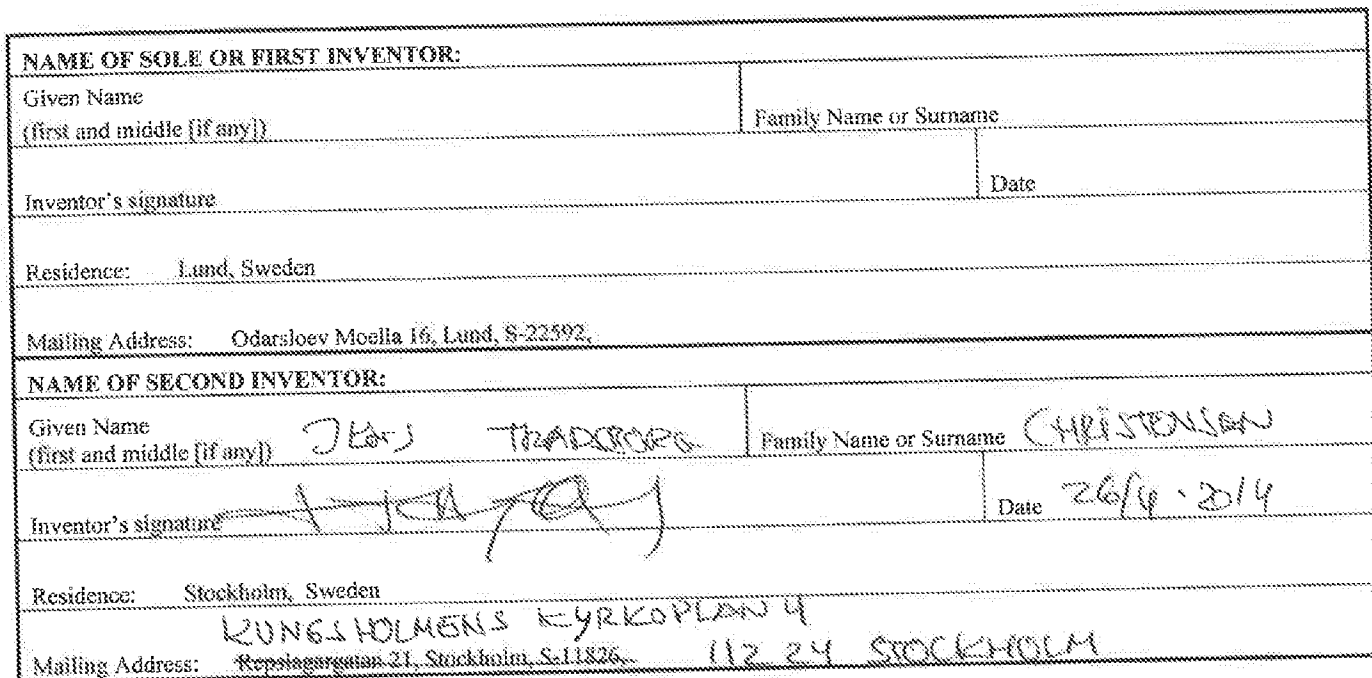 NAME OF SOLE OR FIRST INVENTOR:
Given Name
(first and middle [if any]) Family Name or Surname
Inventor's signature Date
Residence: Lund, Sweden
Mailing Address: Odarsloev Moella 16, Lund, S-22592,
NAME OF SECOND INVENTOR:
Given Name
(first and middle [if any]) Family Name or Surname CHRISTENSEN
Inventor's signature Date 26/4 · 2014
Residence: Stockholm, Sweden
KUNGSHOLMENS KYRKOPLAN 4
Mailing Address: Repslagargatan 21, Stockholm, S-11826, 112 24 STOCKHOLM